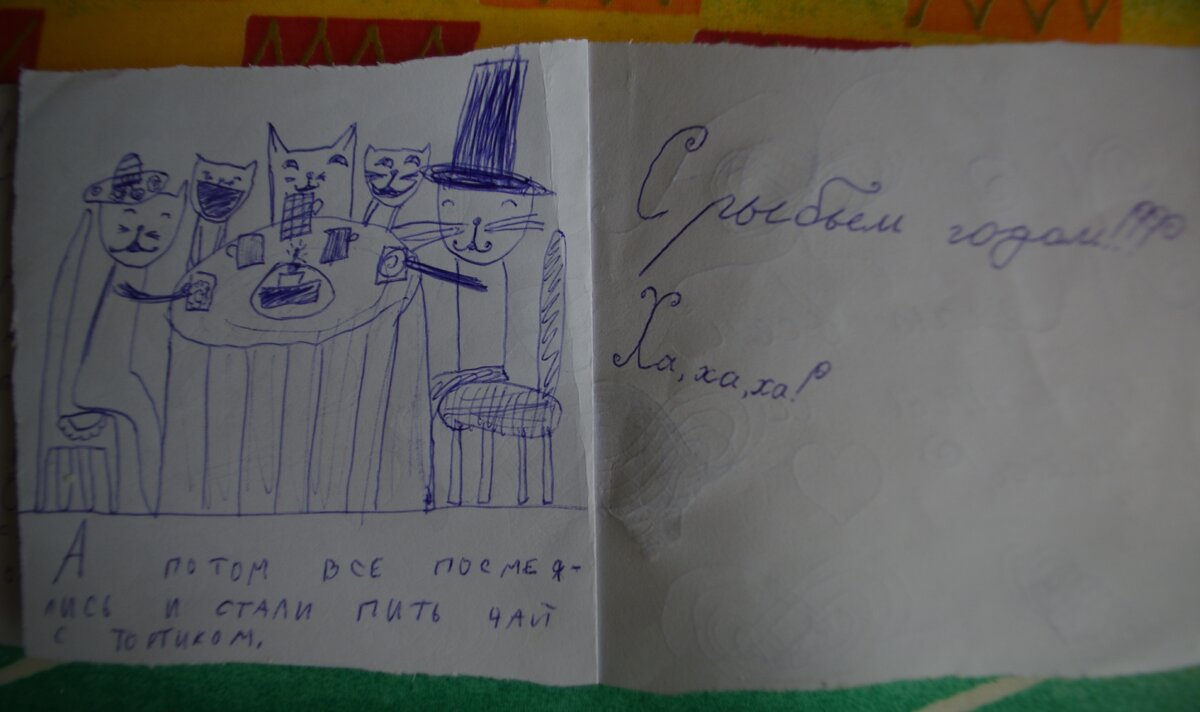 А ПОТОМ ВСЕ ПОСМЕЯ-
ЛИСЬ И СТАЛИ ПИТЬ ЧАЙ
С ТОРТИКОМ.
С рыбьем годом!!!!
Ха, ха, ха!